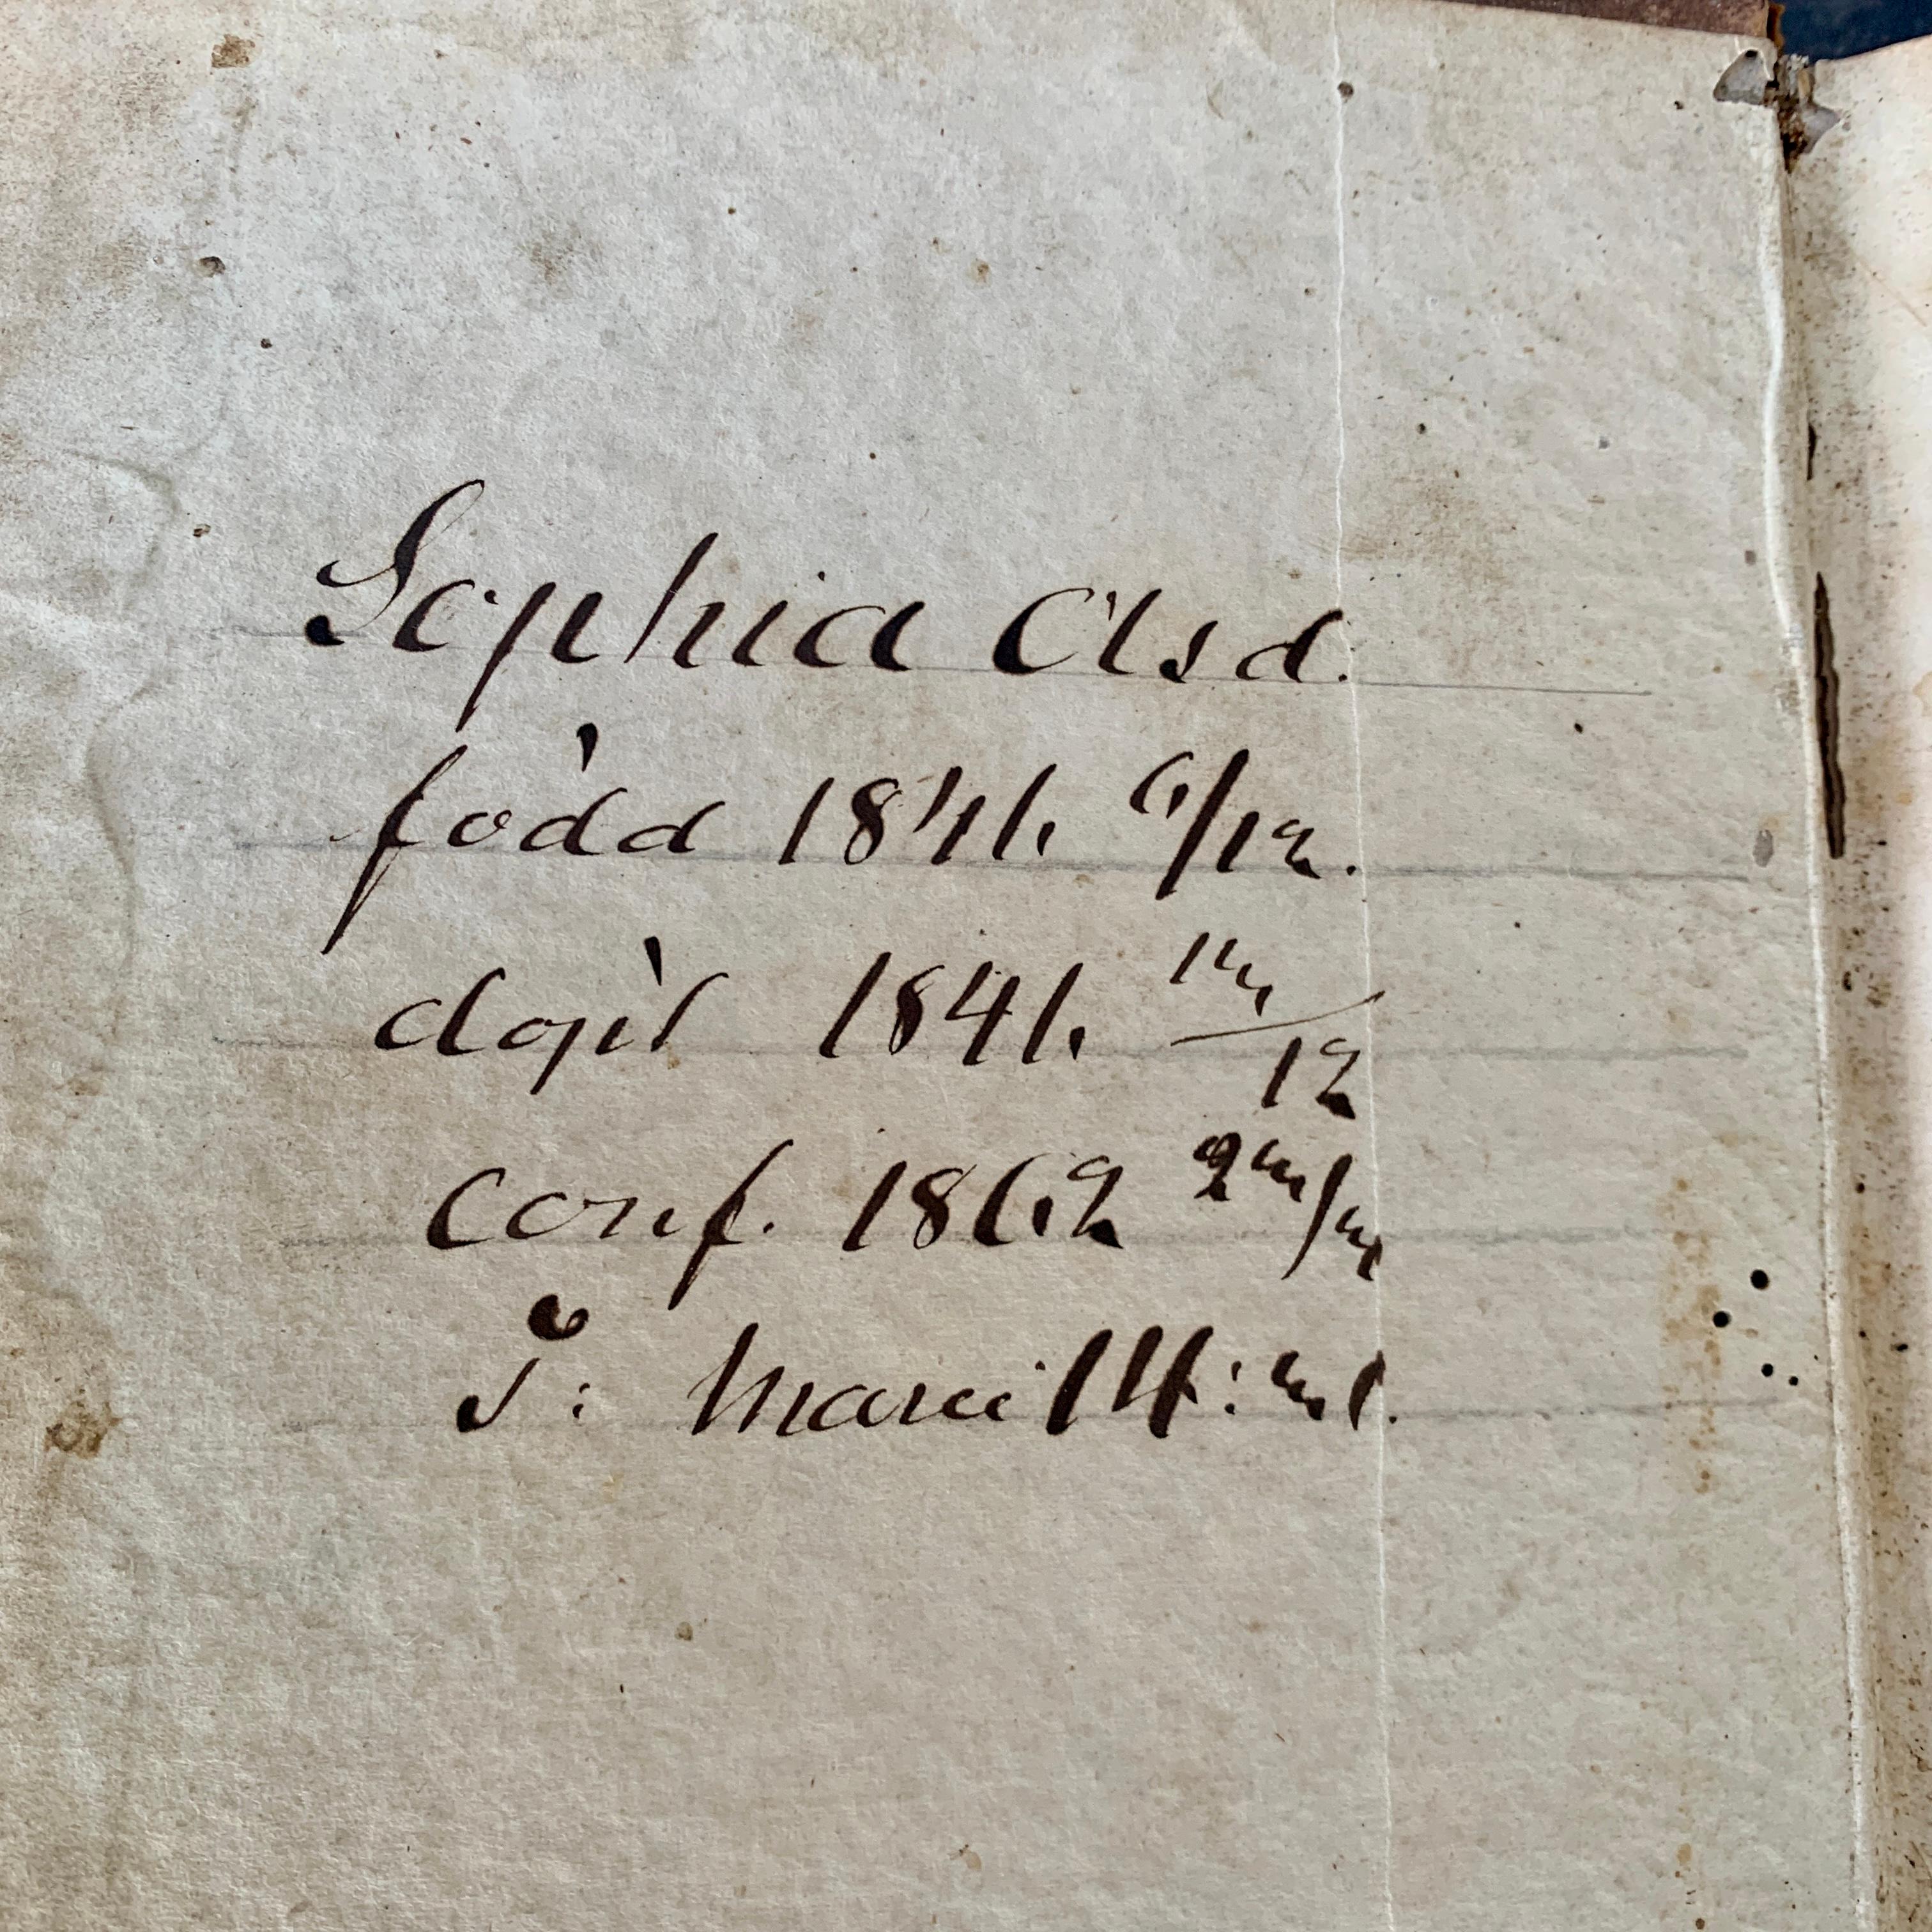 Sophia Olsd.
född 1846 6/12.
döpt 1846 13/12
Conf. 1862 23/3
Marci 14: 31.